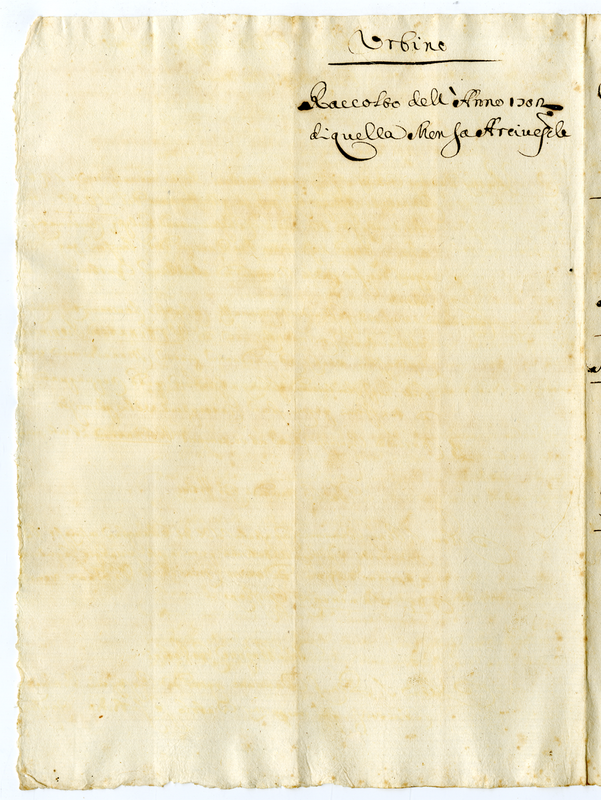 Urbino
Raccolto dell'Anno 1702
di quella Mensa Arciuesc.le